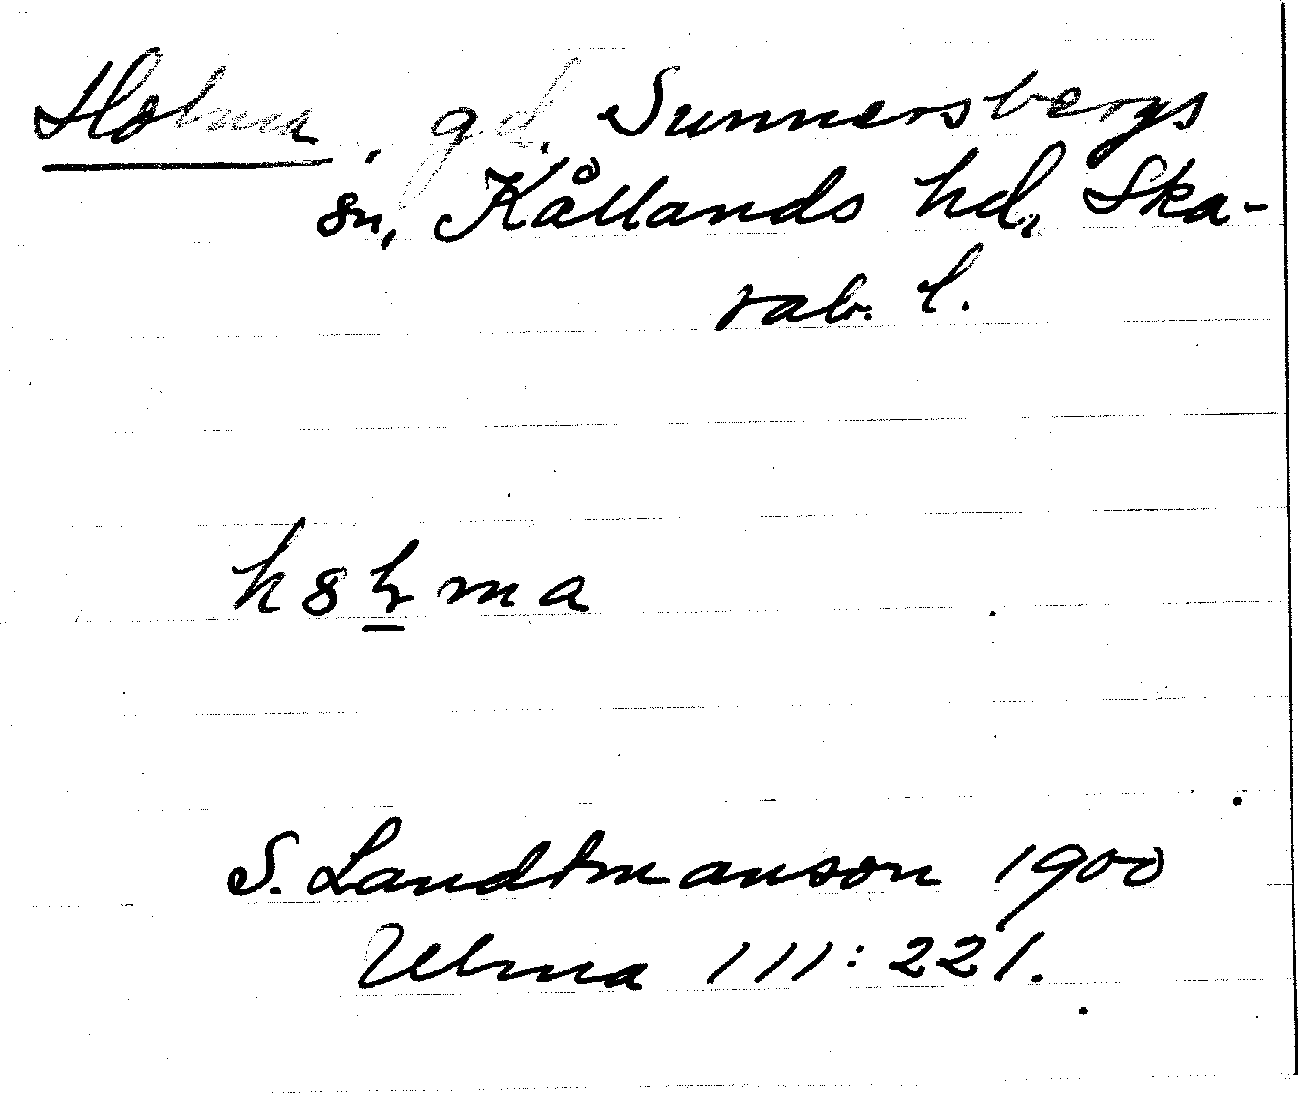 Holma, gd. Sunnersbergs
sn, Kållands hd, Ska-
rab. l.
h8lma
S. Landtmanson 1900
Ulma 111:221.